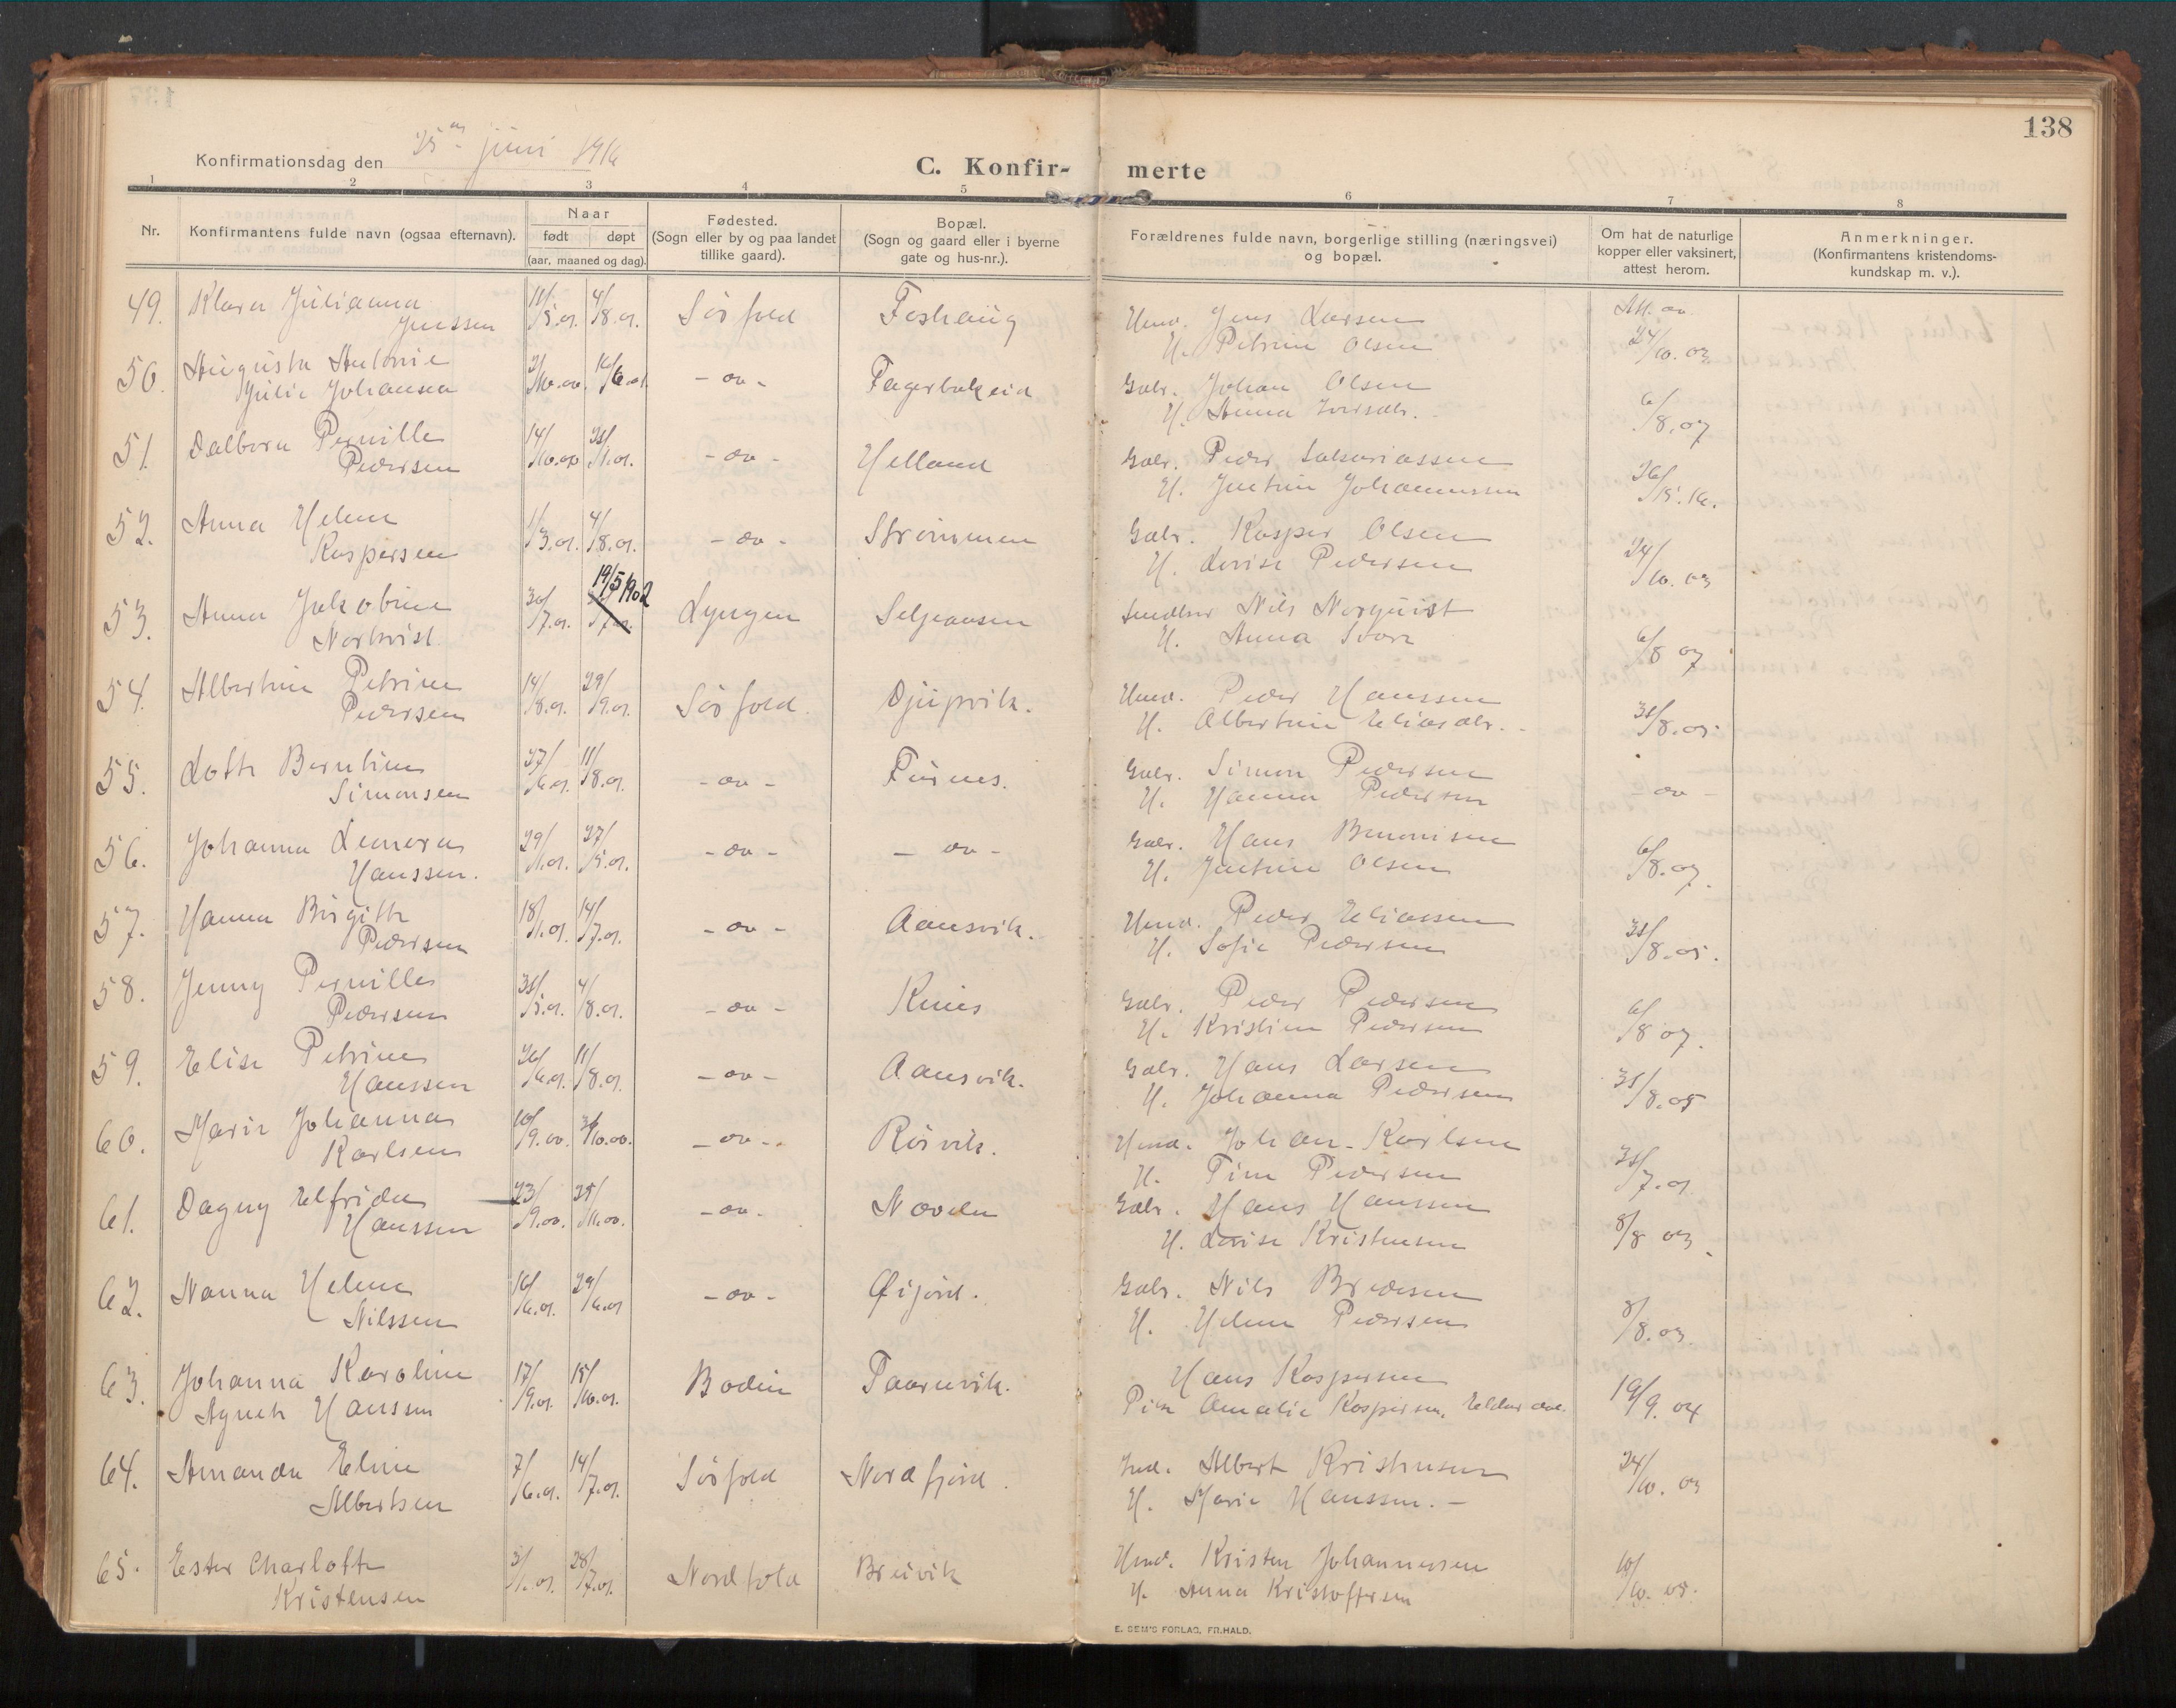 138
Konfirmationsdag den 25de juni 1916
C. Konfir- merte
1 2 3 4 5 6 7 8
Nr.
Konfirmantens fulde navn (ogsaa efternavn).
Naar
født døpt
(aar, maaned og dag).
Fødested.
(Sogn eller by og paa landet
tillike gaard).
Bopæl.
(Sogn og gaard eller i byerne
gate og hus-nr.).
Forældrenes fulde navn, borgerlige stilling (næringsvei)
og bopæl.
Om hat de naturlige
kopper eller vaksinert,
attest herom.
Anmerkninger.
(Konfirmantens kristendoms-
kundskap m. v.).
49. Klara Julianna 11/5.01. 4/8.01. Sørfold Foshaug Huud. Jens Larsen Att. av
Jenssen H. Petrine Olsen 24/10.03
50. Augusta Antonie 2/10.00. 16/6.01. - ov - Fagerbakeid Gabr. Johan Olsen
Julie Johansen H. Anna 6/8.07
51. Dalbora Pernille 14/10.00 31/1.01. - ov - Helland Gabr. Peder Sakariassen
Pedersen H. Justine Johannessen 26/5.16.
52. Anna Helene 1/3.01. 4/8.01. - ov - Strømmen Gabr. Kasper Olsen
Kaspersen H. Lovise Pedersen 24/10.03
53. Anna Jakobine 30/7.01. 19/5 1902 Lyngen Seljeaasen Nils Norquist
Norkvist. H. Anna 6/8 07
54. Albertine Petrine 14/8.01. 29/9.01. Sørfold. Djupvik. Huud. Peder Hanssen
Pedersen H. Albertine Eliasdtr. 31/8.05
55. Lotte Berntine 27/6.01. 11/8.01. - ov - Furnes. Gabr. Simon Pedersen
Simonsen H. Hanna Pedersen - ov -
56. Johanna Lenora 29/1.01. 27/5.01. - ov - - ov - Gabr. Hans Benonisen
Hanssen. H. Justine Olsen 6/8.07.
57. Hanna Birgitte 18/1.01. 14/7.01. - ov - Aansvik. Huud. Peder Eliassen
Pedersen H. Sofie Pedersen 31/8.05.
58. Jenny Pernille 31/5.01. 4/8.01. - ov - Knes Gabr. Peder Pedersen
Pedersen H. Kristine Pedersen 6/8 07.
59. Elise Petrine 26/6.01. 11/8.01. - ov - Aansvik. Gabr. Hans Larsen
Hanssen H. Johanna Pedersen 31/8.05
60. Marie Johanna 10/9.00. /10.00. - ov - Rørvik. Huud. Johan Karlsen
Karlsen H. Tine Pedersen 31/7.01
61. Dagny Elfrida 23/9.00. 25/11.00. - ov - Noveln Gabr. Hans Hanssen
Hanssen H. Lovise Kristensen 8/8 03.
62. Nanna Helene 16/6.01. 29/6.01 - ov - Øijord. Gabr. Nils Bredesen
Nilssen H. Helene Pedersen 8/8.03
63. Johanna Karoline 17/9.01. 15/10.01. Bodin Taarnvik. Hans Kaspersen
Agnete Hanssen Pike Amalie Kaspersen, 19/9.04
64. Amanda Eline 7/6.01. 14/7.01. Sørfold Nordfjord. Ind. Albert Kristensen
Albertsen H. Marie Hanssen. - 24/10.03
65. Ester Charlotte 3/1.01. 28/7.01. Nordfold Breivik Huud. Kristen Johannessen
Kristensen H. Anna Kristoffersen 10/10.05.
E. SEM'S FORLAG, FR.HALD.